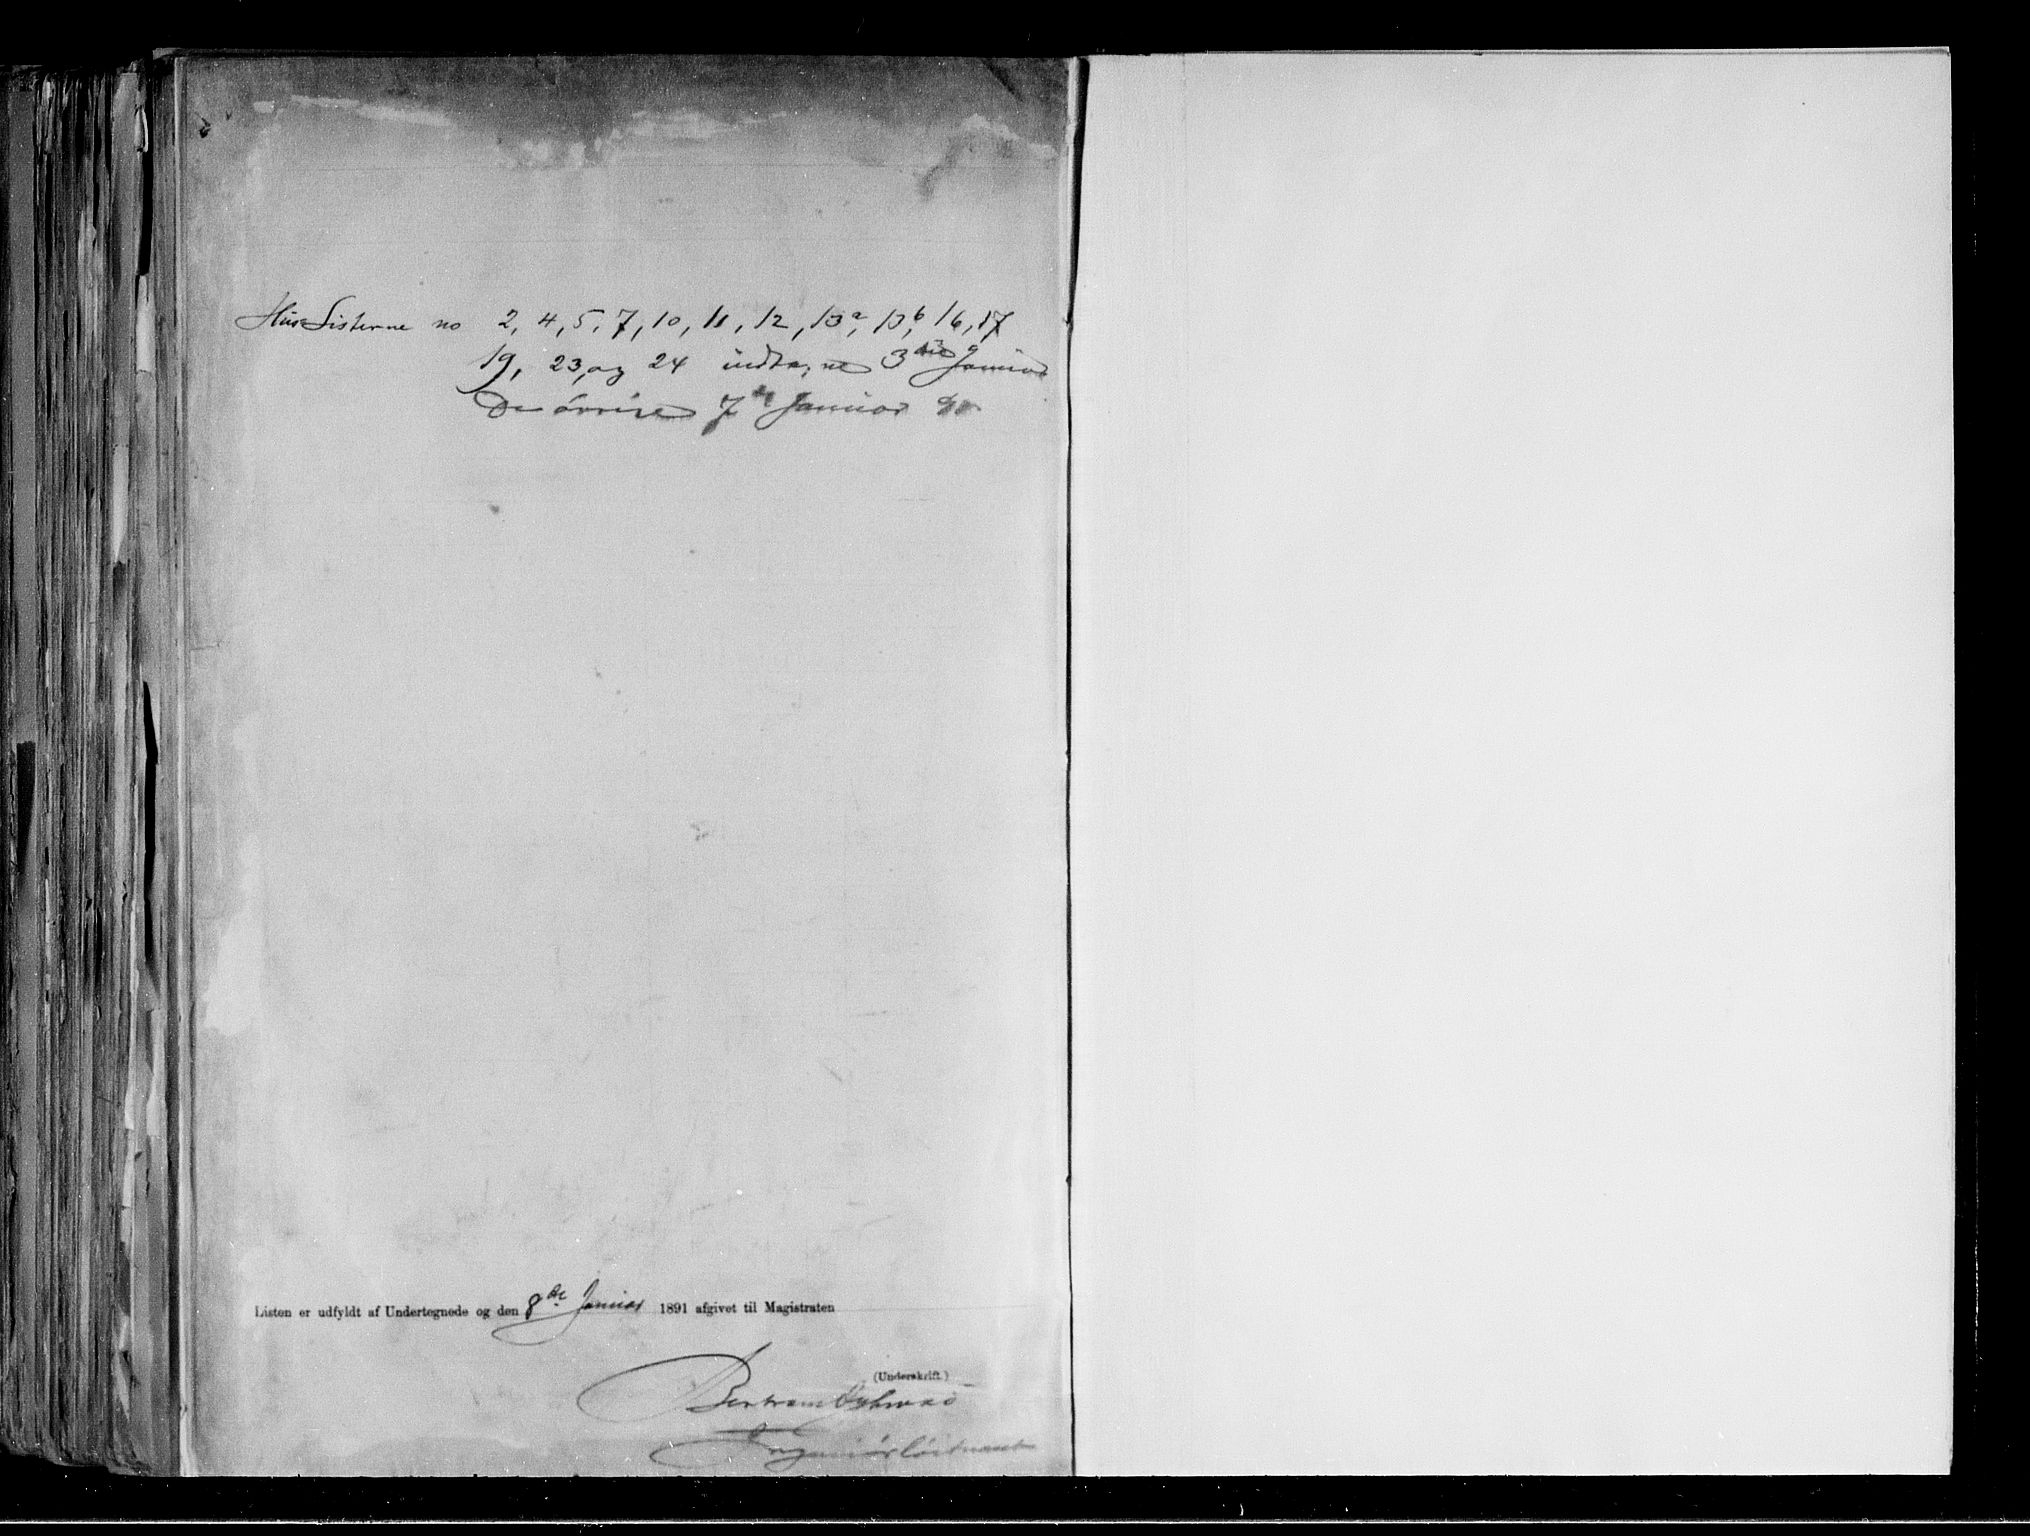 Hus Listerne no 2, 4, 5, 7, 10, 11, 12, 13a, 13b, 16, 17
19, 23, og 24 indtagne 3die Januar
De øvrige 7de Januar
Listen er udfyldt af Undertegnede og den 8de Januar 1891 afgivet til Magistraten
(Underskrift.)
Bertram
Ingeniørløitnant